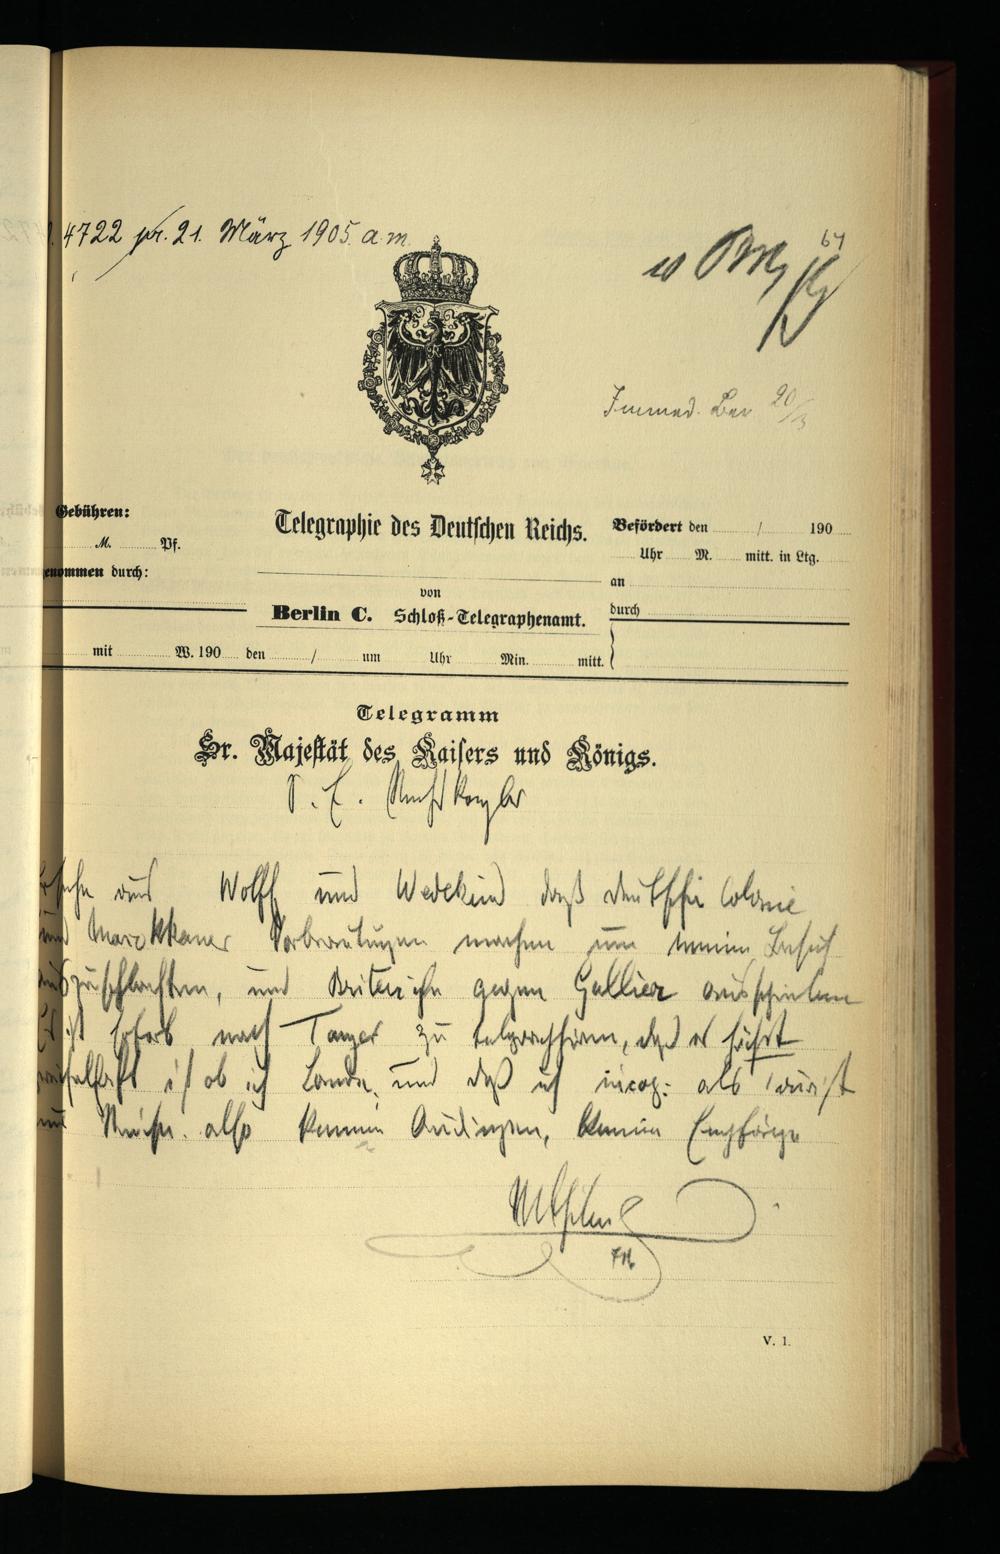 4722 pr. 21. März 1905. a.m.
64
Immed. Ber 20/3
Gebühren:
M. Pf.
enommen durch:
Telegraphie des Deutschen Reichs.
von
Berlin C. Schloß-Telegraphenamt.
Befördert den / 190
Uhr M. mitt. in Ltg.
an
durch
mit W. 190 den / um Uhr Min. mitt.
Telegramm
Sr. Majestät des Kaisers und Königs.
S. E. Reichskanzler
aus Wolff und Wedekind daß deutsche Colonie
und Marokkaner Vorbereitungen machen um meinen Besuch
auszuschlachten, und Briten ihn gegen Gallier ausspielen
Es ist sofort nach Tanger zu telegraphiren, daß es höchst
zweifelhaft ist ob ich Lande, und daß ich incog: als Tourist
nur Reise. also keinen Audienzen, keinen Empfänge
Wilhelm
V. 1.